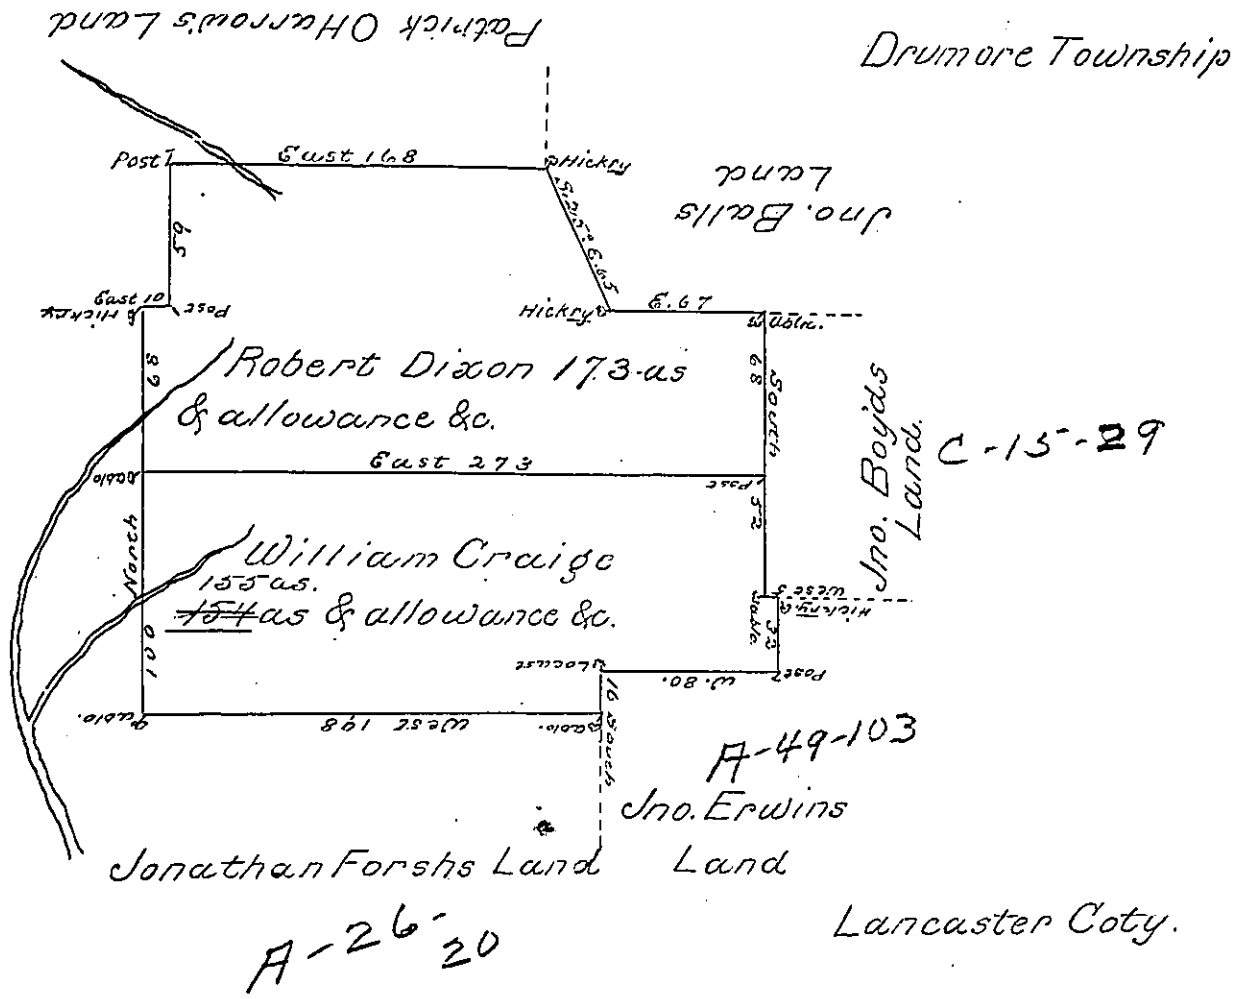 Patrick OHarrow's Land
Drumore Township
Post
East 168
Hickry
Jno. Balls
Land
59
S. 25° E. 65
East 10
Hickry
Post
Hickry
E. 67
68
Robert Dixon 173 as
& allowance &c.
68
South
Jno. Boyds
Land.
C-15-29
East 273
Post
52
North
William Craige
155 as.
154 as & allowance &c.
West 3
Hickry
32
Locust
W. 80.
Post
100
16 South
West 198
A-49-103
Jno. Erwins
Land
Jonathan Forshs Land
A-26-20
Lancaster Coty.